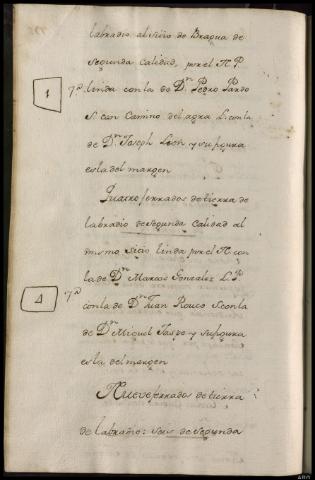 labradio al sitio de Bragua de
Segunda Calidad, por el N. P.
1 7.ª linda con la de D.n Pedro Pardo
S. con Camino del agra L. con la
de D.n Joseph Leon y su figura
es la del margen
Quatro ferrados de tierra de
labradio de Segunda Calidad al
mismo sitio linda por el N con
la de D.n Marcos Gonzalez L. P.
7.ª con la de D.n Juan Rouco S. con la
de D.n Miguel Taspe y su figura
es la del margen
Nueve ferrados de tierra
de labradio: seis de Segunda